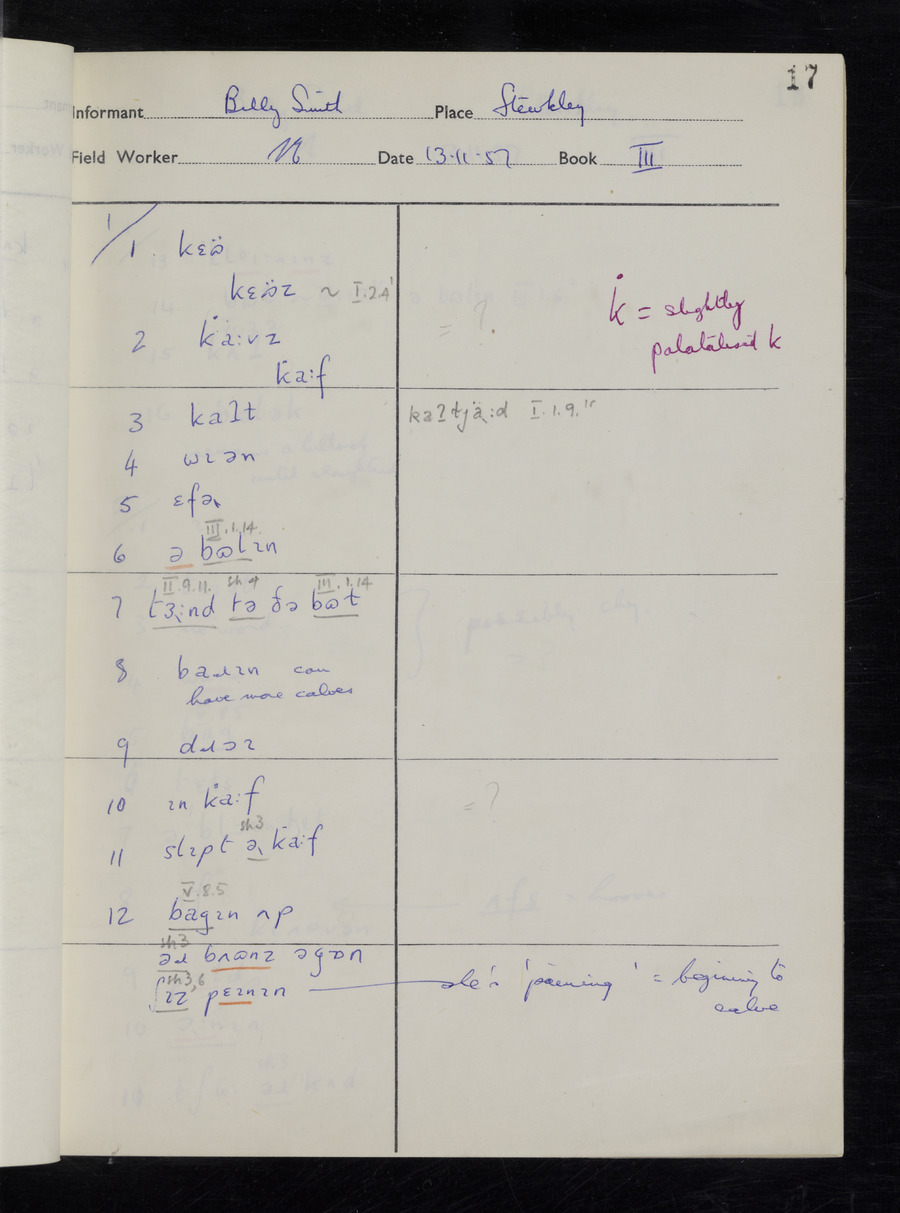 17
Informant Billy Smith Place Stewkley
Field Worker Date 13.11.57 Book III
1/
1. kɛɷ̈
kɛɷ̈z ~ I.2.4
= ?.
k̇ = slightly
palatalised k
2 k̇a:vz
k̇a:f
3 kaʔt
kaʔtjä:d I.1.9.
4 wɪən
5 ɛfə
III.1.14.
6 ə bɷlɪn
II.9.11. sh 9 III.1.14
7 tɜ:nd tə ðə bɷt
8 baɹɪn can
have more calves
9 dɹɔɪ
10 ɪn k̇a:f
= ?
sh3
11 slɪpt ə k̇a:f
V.8.5
12 bagɪn ʌp
sh3
əɹ bʌɷnz əgɒn
sh3,6
ʃɪz pɛɪnɪn
she's 'paining' = beginning to
calve